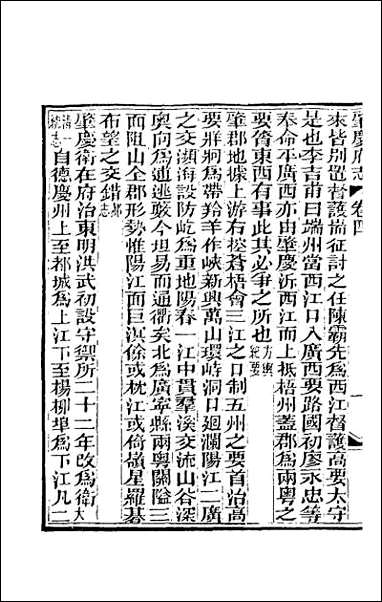 肇慶府志　卷四
來皆別置督護搗征討之任陳霸先為西江督護高要太守
是也李吉甫曰端州當西江口入廣西要路國初廖永忠等
奉命平廣西亦由肇慶泝西江而上抵梧州蓋郡為兩粵之
要膂東西有事此其必爭之所也方輿紀要
肇郡地據上游右控蒼梧會三江之口制五州之要首治高
要牂牁為帶羚羊作峽新興萬山環峙洞口迴瀾陽江二廣
之交瀕海設防屹為重地陽春一江中貫羣溪交流山谷深
奥向為逋逃藪今坦易而通衢矣北為廣寧縣兩粵關隘三
面阻山全郡形勢惟陽江而巨溟餘或枕江或倚嶺星羅碁
布望之交錯郝志
肇慶衛在府治東明洪武初設守禦所二十二年改為衛大清一統志
自德慶州上至都城為上江下至楊柳埠為下江凡二